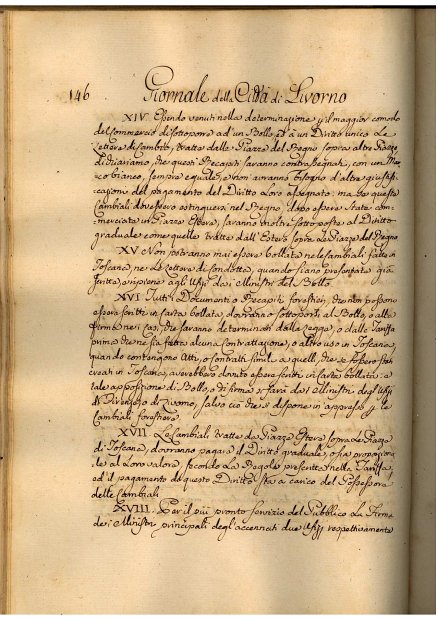 146 Giornale della Città di Livorno
XIV Essendo venuti nella determinazione p il maggior comodo
del Commercio di sottoporre ad un Bollo, ed a un Diritto unico Le
Lettere di Cambio, tratte dalle Piazze del Regno sopra altre Piazze
di che questi Recapiti saranno contrasegnati, con un
bianco, sempre eguale, e non avranno bisogno d'altra giustifi-
cazione del pagamento del Diritto Loro assegnato: ma se queste
Cambiali dovessero estinguersi nel Regno, dopo essere state com-
merciate in Piazze Estere, saranno inoltre sottoposte al Diritto
graduale come quelle tratte dall'Estero sopra Le Piazze del Regno
XV Non potranno mai essere bollate nelle Cambiali fatte in
Toscana, ne Le Lettere di Condotta, quando siano presentate già
scritte, e ripiene agli Ufizi dai Ministri del Bollo
XVI Tutti i Documenti, o Recapiti forestieri, che non possono
essere scritti in carta bollata, dovranno sottoporsi al Bollo, o alla
firma ne i casi, che saranno determinati dalla Legge, o dalla Tariffa
prima che ne sia fatta alcuna contrattazione, o altro uso in Toscana,
quando contengono Atti, o contratti simili a quelli, che se fossero stati
creati in Toscana, avrebbero dovuto essere scritti in carta bollata: e
tale apposizione di Bollo, o di firma si farà dai Ministri degli Ufizi
di Firenze, o di Livorno, salvo ciò che si dispone in appresso p le
Cambiali forestiere
XVII Le Cambiali tratte da Piazze Estere sopra Le Piazze
di Toscana, dovranno pagare il Diritto graduale, o sia proporziona-
le al Loro valore, secondo La Regola presente nella Tariffa,
ed il pagamento di questo Diritto sta a carico del Possessore
delle Cambiali
XVIII. Per il più pronto servizio del Pubblico La Firma
dei Ministri principali degl'accennati due Ufizj respettivamente